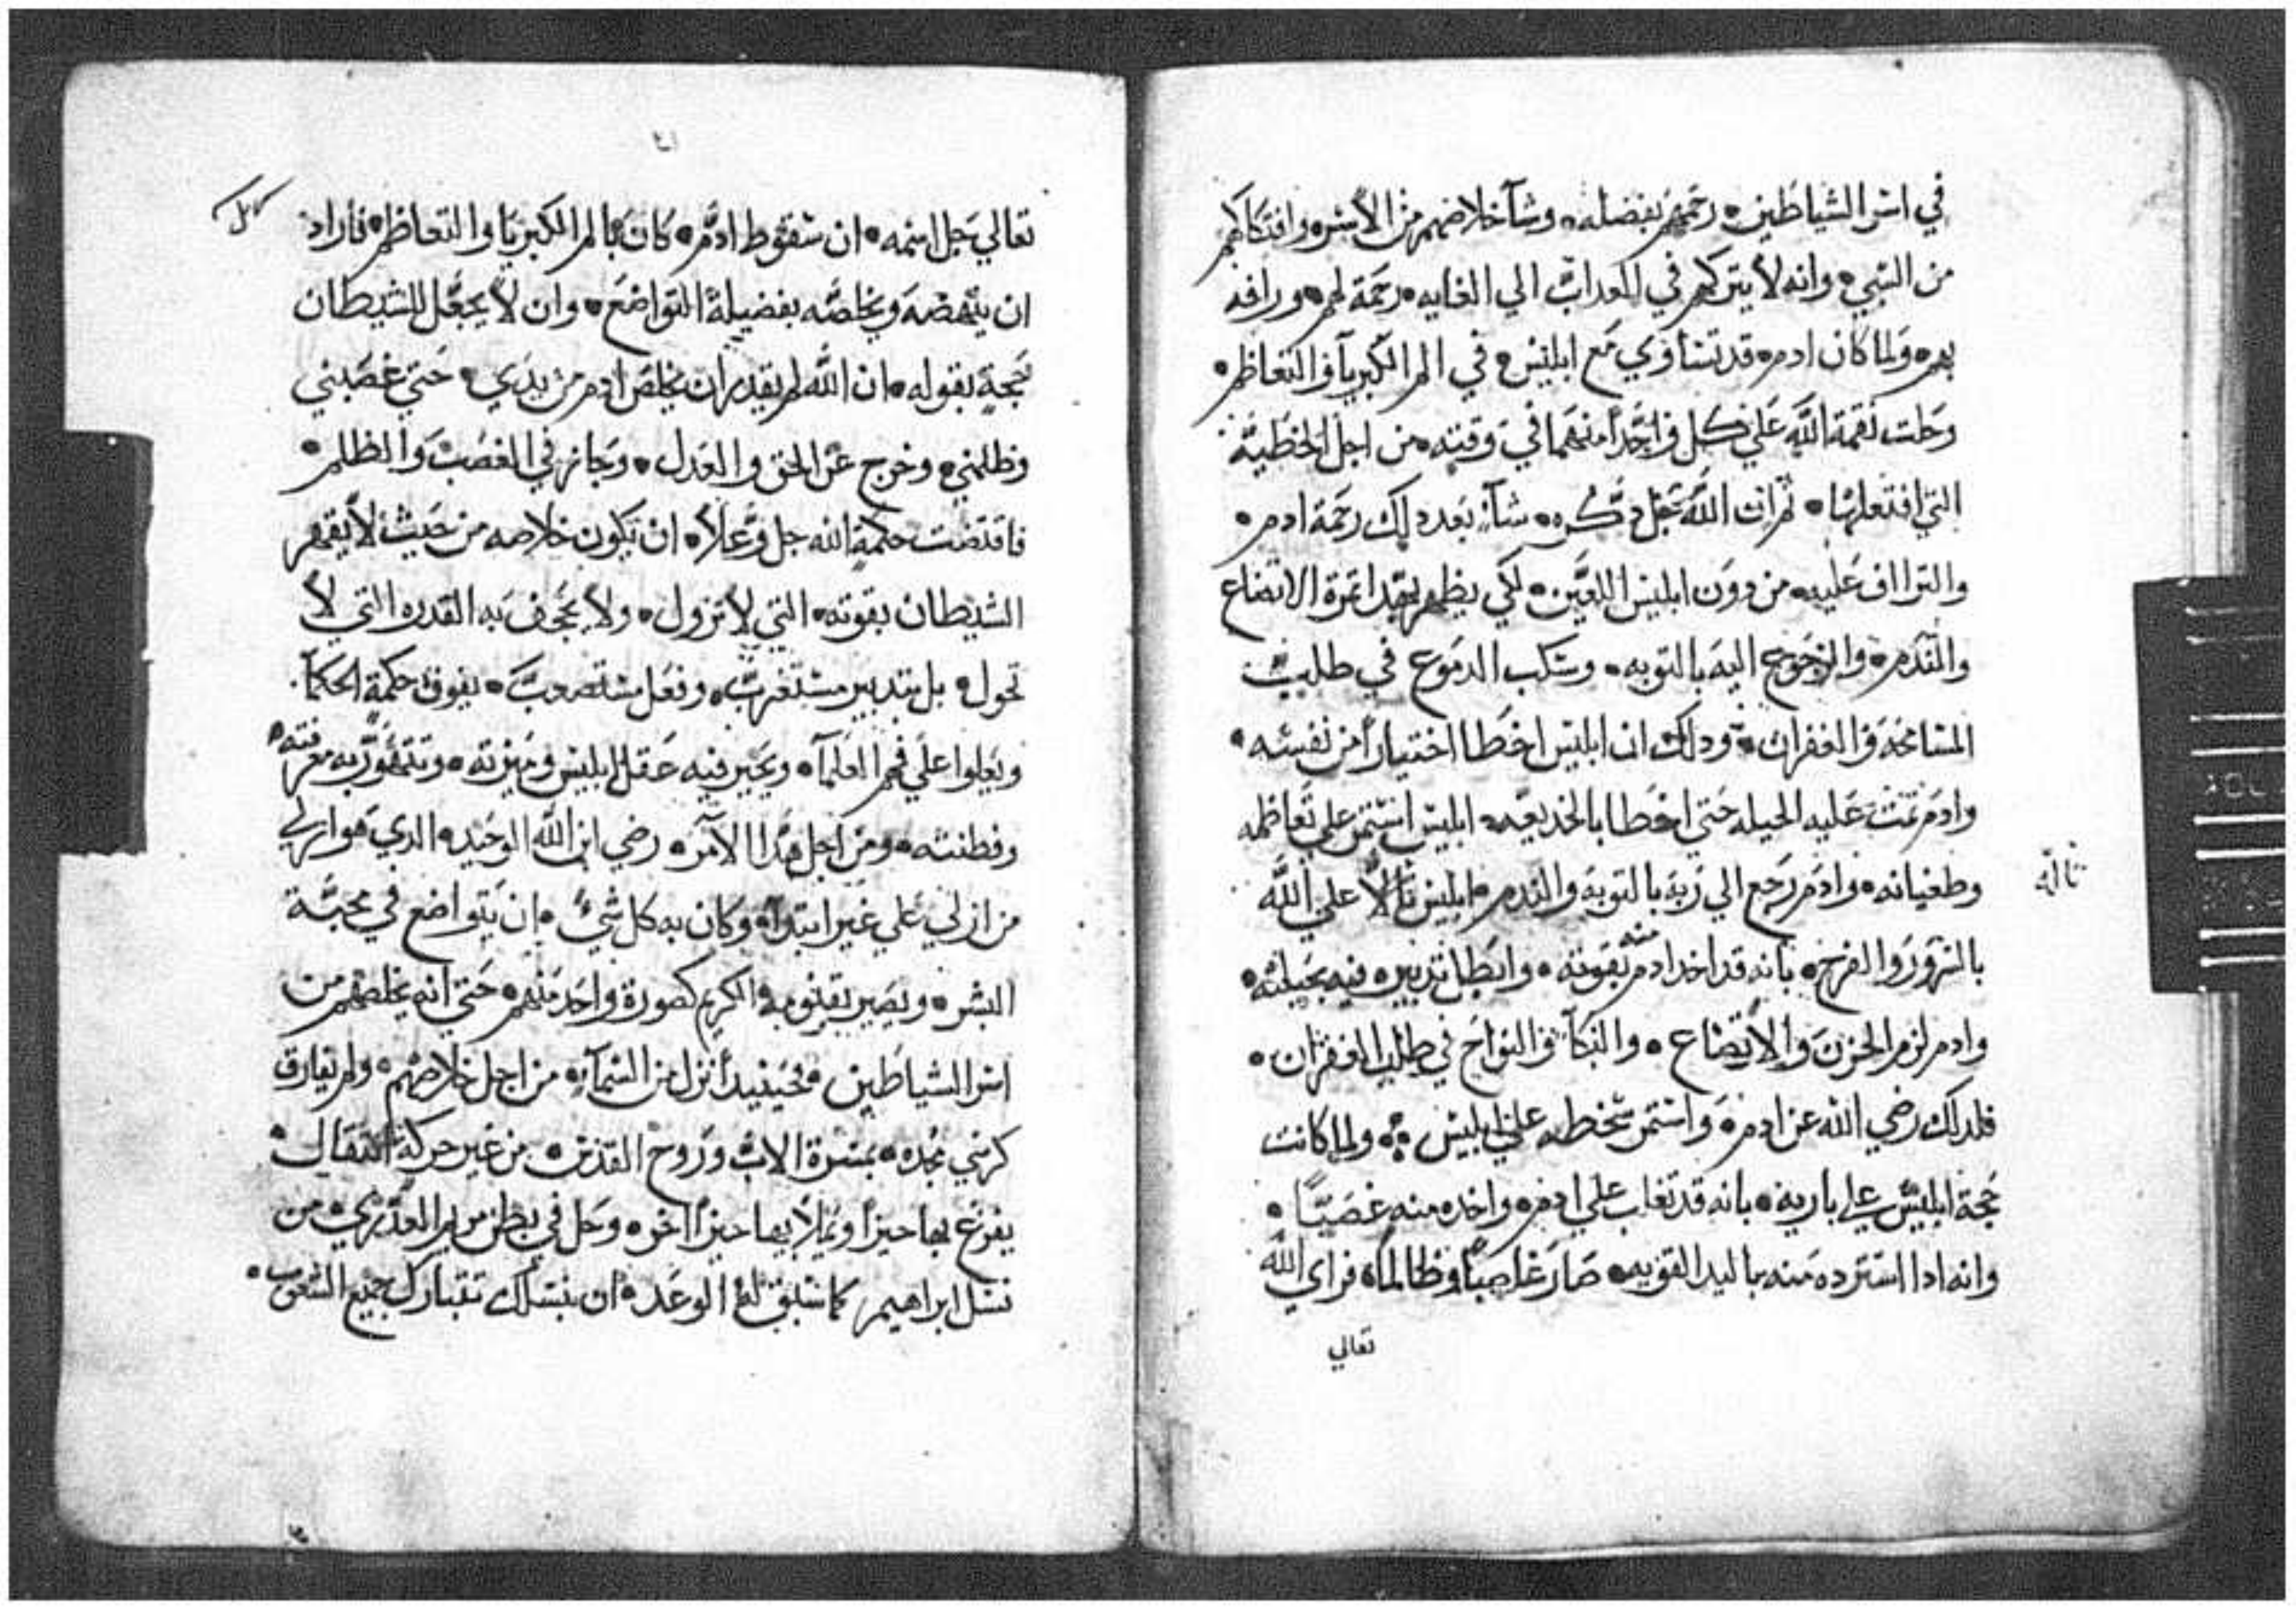 في اسر الشياطين • رحمهم بفضله • وشآ خلاصهم من الاسر • وافتكاكهم
من السبي • وانه لا يتركهم في العداب الي الغايه • رحمة لهم • ورافه
بهم • ولما كان ادم • قد تساوي مع ابليس • في الم الكبريآ والتعاظم •
وحلت نقمة الله علي كل واحداً منهما في وقته • من اجل الخطية •
التي افتعلها • ثم ان الله جل دكره • شآ بعد دلك رحمة ادم •
والتراف عليه • من دون ابليس اللعين • لكي يظهر بهدا تمرة الاتضاع
والندم • والرجوع اليه بالتوبه • وسكب الدموع في طلب
المسامحه والغفران • ودلك ان ابليس اخطا اختياراً من نفسه •
وادم تمت عليه الحيله حتي اخطا بالخديعه • ابليس استمر علي تعاظمه
وطغيانه • وادم رجع الي ربه بالتوبة والندم • ابليس تألاّ علي الله
تألّه
بالسرور والفرح • بانه قد اخد ادم منه بقوته • وابطا تدبيره فيه بحيلته •
وادم لزم الحزن والاتضاع • والبكآ والنواح في طلب الغفران •
فلدلك رضي الله عن ادم • واستمر سخطه علي ابليس • ولما كانت
حجة ابليس علي باريه • بانه قد تغلب علي ادم • واخده منه غصباً •
وانه ادا استرده منه باليد القويه • صار غاصباً وظالماً • فراي الله
تعالي
تعالي جل اسمه • ان سقوط ادم • كان بالم الكبريا والتعاظم • فأراد
ان ينهضه ويخلصه بفضيلة التواضع • وان لا يجعل للشيطان
حجة بقوله • ان الله لم يقدر ان يخلص ادم من يدي • حتي غصبني
وظلمني • وخرج عن الحق والعدل • وجاز في الغصب والظلم •
فاقتضت حكمة الله جل وعلا • ان يكون خلاصه من حيث لا يقهر
الشيطان بقوته • التي لا تزول • ولا يجحف به القدره التي لا
تحول • بل بتدبير مستغرب • وفعل مستصعب • يفوق حكمة الحكمآ •
ويعلوا علي فهم العلمآ • ويحير فيه عقل ابليس وميزته • وتتهور به معرفته •
وفطنته • ومن اجل هدا الامر • رضي ابن الله الوحيد • الدي هو ازلي
من ازلي علي غير ابتدآ • وكان به كل شيً • ان يتواضع في محبة
البشر • ويصير بقنومه الكريم كصورة واحد منهم • حتي انه يخلصهم من
اسر الشياطين • فحينيداً نزل من السمآ • من اجل خلاصهم • ولم يفارق
كرسي مجده • بمسرة الاب وروح القدس • من غير حركة انتقال •
يفرغ بها حيزاً ويملأ بها حيزاً اخر • وحل في بطن مريم العدري • من
نسل ابراهيم كما سبق له الوعد • ان بنسلك تتبارك جميع الشعوب •